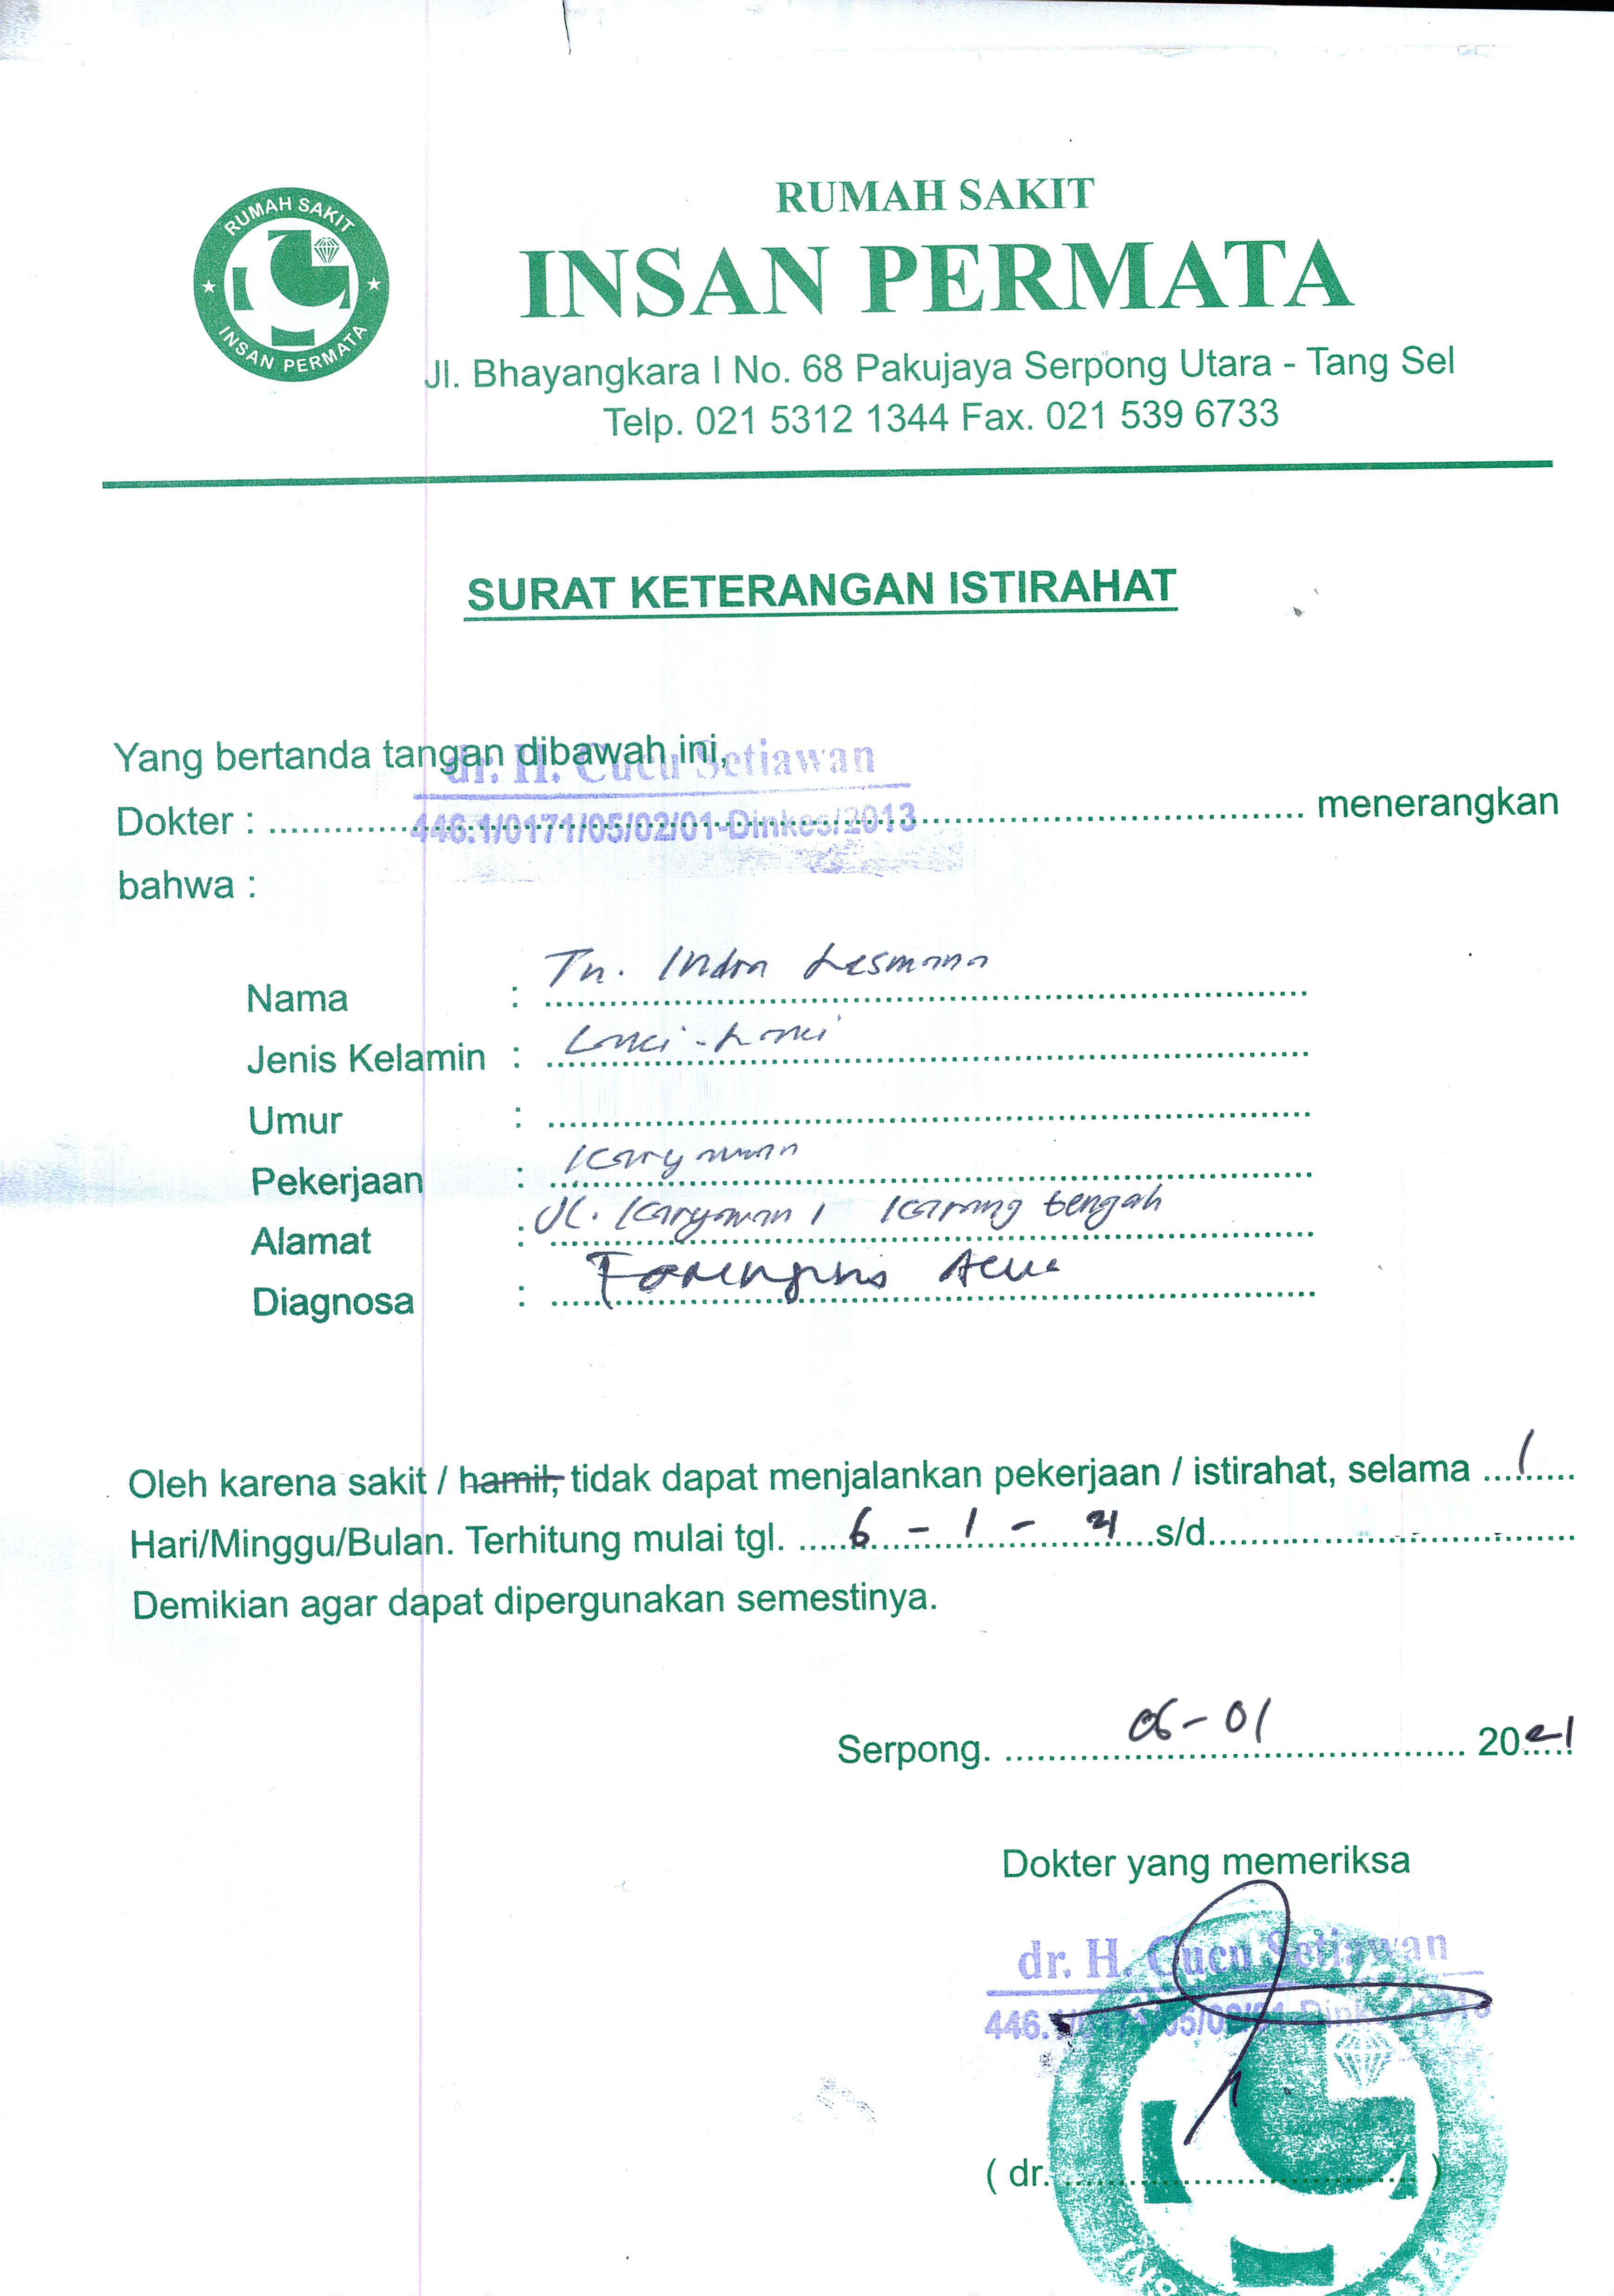 RUMAH SAKIT
INSAN PERMATA
RUMAH SAKIT
INSAN PERMATA
Jl. Bhayangkara I No. 68 Pakujaya Serpong Utara - Tang Sel
Telp. 021 5312 1344 Fax. 021 539 6733
SURAT KETERANGAN ISTIRAHAT
Yang bertanda tangan dibawah ini,
dr. H. Cucu Setiawan
Dokter : menerangkan
446.1/0171/05/02/01-Dinkes/2013
bahwa :
Nama : Tn. Indra Lesmana
Jenis Kelamin : Laki-Laki
Umur :
Pekerjaan : Karyawan
Alamat : Jl. Karyawan 1 Karang tengah
Diagnosa : Faringitis
Oleh karena sakit / hamil, tidak dapat menjalankan pekerjaan / istirahat, selama 1
Hari/Minggu/Bulan. Terhitung mulai tgl. 6 - 1 - 21 s/d
Demikian agar dapat dipergunakan semestinya.
Serpong. 06-01 2021
Dokter yang memeriksa
dr. H. Cucu Setiawan
446.1/0171/05/02/01-Dinkes/2013
( dr. )